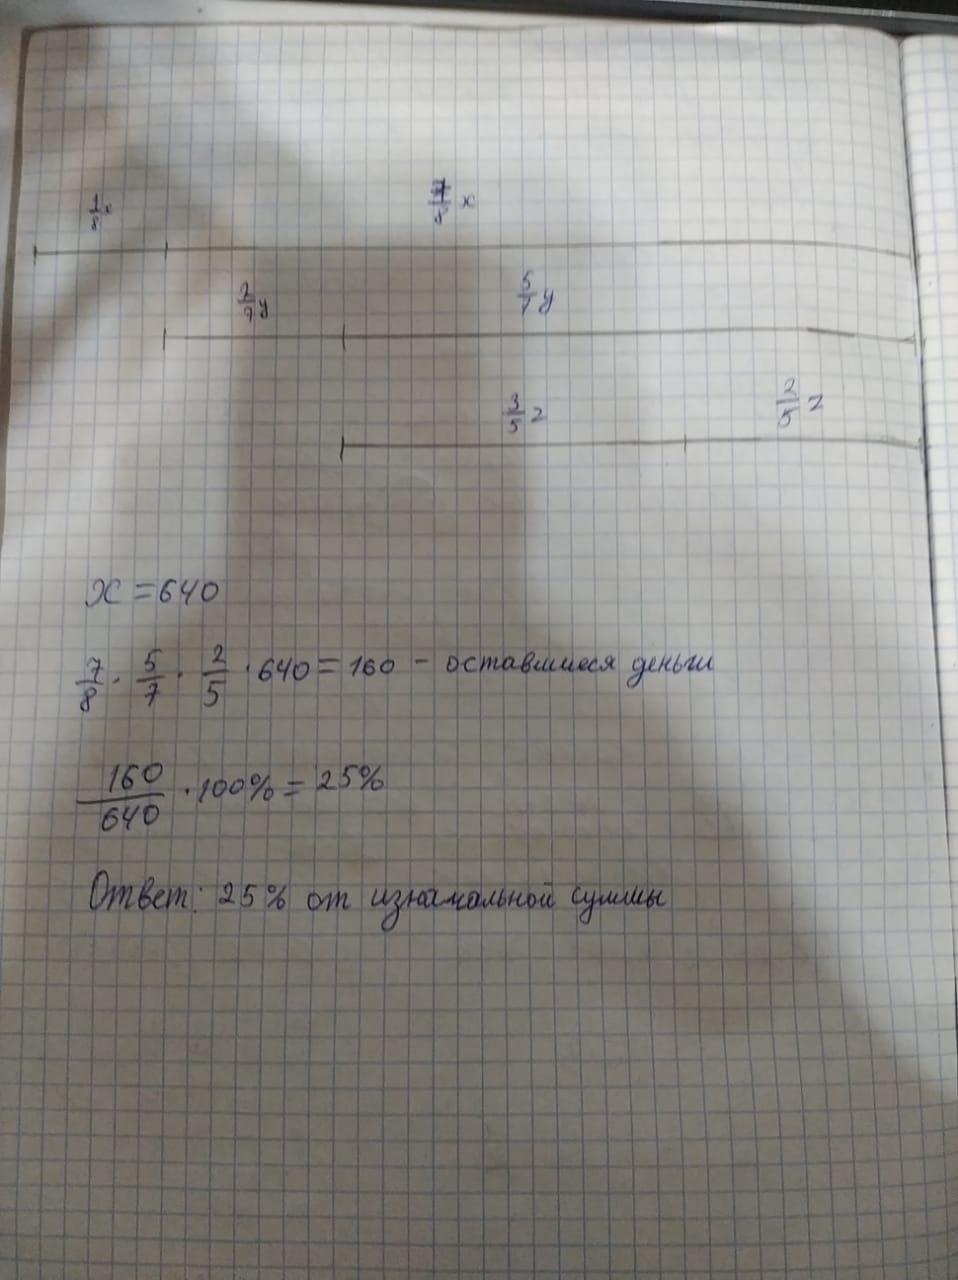 1/8 x 7/8 x
2/7 y 5/7 y
3/5 z 2/5 z
x = 640
7/8 · 5/7 · 2/5 · 640 = 160 - оставшиеся деньги
160/640 · 100% = 25%
Ответ: 25% от изначальной суммы